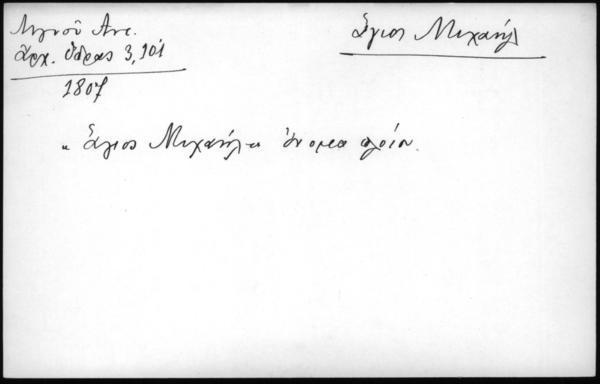 Λιγνοῦ Ἀντ.
Ἀρχ. Ὕδρας 3,101
1807
Ἅγιος Μιχαήλ
« Ἅγιος Μιχαήλ » ὄνομα πλοίου.